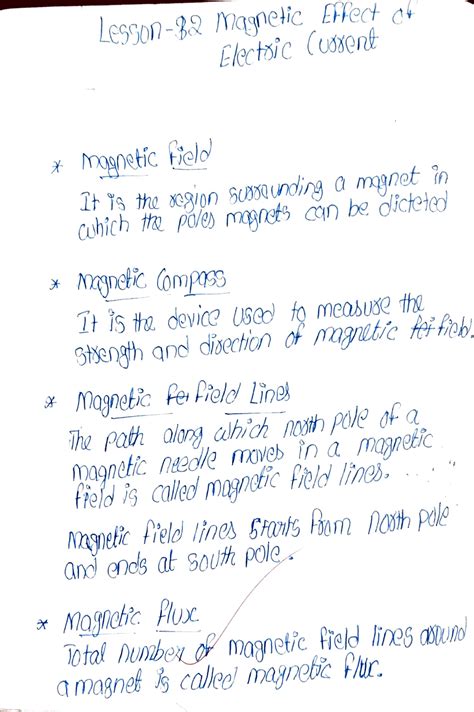 Lesson-82 Magnetic Effect of
Electric Current
* Magnetic Field
It is the region surrounding a magnet in
which the poles magnets can be dicteted
* Magnetic Compass
It is the device used to measure the
strength and direction of magnetic fei field.
* Magnetic fei field Lines
The path along which north pole of a
magnetic needle moves in a magnetic
field is called magnetic field lines.
Magnetic field lines starts from north pole
and ends at south pole.
* Magnetic flux
Total number of magnetic field lines around
a magnet is called magnetic flux.